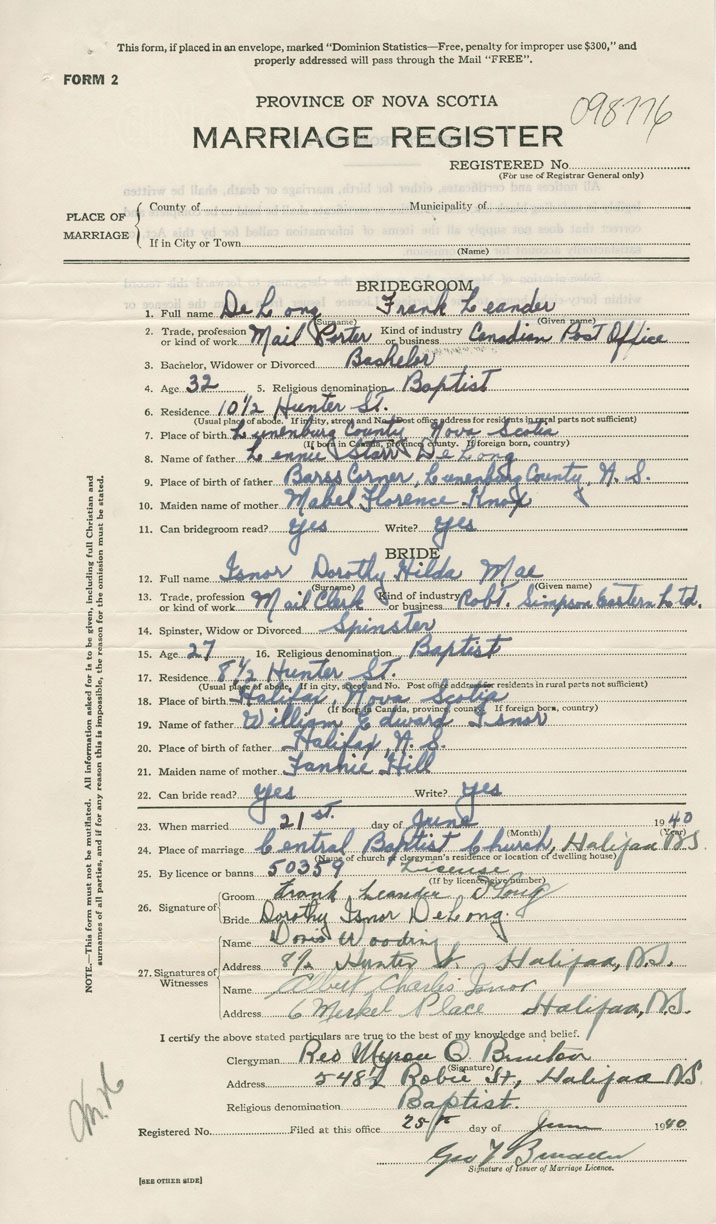 This form, if placed in an envelope, marked "Dominion Statistics—Free, penalty for improper use $300," and
properly addressed will pass through the Mail "FREE".
FORM 2
PROVINCE OF NOVA SCOTIA
098776
MARRIAGE REGISTER
REGISTERED No.
(For use of Registrar General only)
PLACE OF MARRIAGE
County of Municipality of
If in City or Town
(Name)
BRIDEGROOM
1. Full name De Long Frank Leander
(Surname) (Given name)
2. Trade, profession or kind of work Mail Porter Kind of industry or business Canadian Post Office
3. Bachelor, Widower or Divorced Bachelor
4. Age 32 5. Religious denomination Baptist
6. Residence 10½ Hunter St.
(Usual place of abode. If in city, street and No. Post office address for residents in rural parts not sufficient)
7. Place of birth Lunenburg County Nova Scotia
(If born in Canada, province, county. If foreign born, country)
8. Name of father Lennie Starr DeLong
9. Place of birth of father Barss Corner, Lunenburg County, N. S.
10. Maiden name of mother Mabel Florence Knox
11. Can bridegroom read? yes Write? yes
BRIDE
12. Full name Isnor Dorothy Hilda Mae
(Surname) (Given name)
13. Trade, profession or kind of work Mail Clerk Kind of industry or business Robt. Simpson Eastern Ltd.
14. Spinster, Widow or Divorced Spinster
15. Age 27 16. Religious denomination Baptist
17. Residence 8½ Hunter St.
(Usual place of abode. If in city, street and No. Post office address for residents in rural parts not sufficient)
18. Place of birth Halifax, Nova Scotia
(If born in Canada, province, county. If foreign born, country)
19. Name of father William Edward Isnor
20. Place of birth of father Halifax, N. S.
21. Maiden name of mother Fannie Hill
22. Can bride read? yes Write? yes
23. When married 21st. day of June 1940
(Month) (Year)
24. Place of marriage Central Baptist Church, Halifax N.S.
(Name of church or clergyman's residence or location of dwelling house)
25. By licence or banns 50359 License
(If by licence give number)
26. Signature of
Groom Frank Leander DeLong
Bride Dorothy Isnor DeLong.
27. Signatures of Witnesses
Name Doris Wooding
Address 8½ Hunter St. Halifax, N.S.
Name Albert Charles Isnor
Address 6 Merkel Place Halifax, N.S.
I certify the above stated particulars are true to the best of my knowledge and belief.
Clergyman Rev Myron O Brinton
(Signature)
Address 548½ Robie St, Halifax N.S.
Religious denomination Baptist.
Registered No. Filed at this office 25th day of June 1940
Geo
Signature of Issuer of Marriage Licence.
[SEE OTHER SIDE]
NOTE.—This form must not be mutilated. All information asked for is to be given, including full Christian and
surnames of all parties, and if for any reason this is impossible, the reason for the omission must be stated.